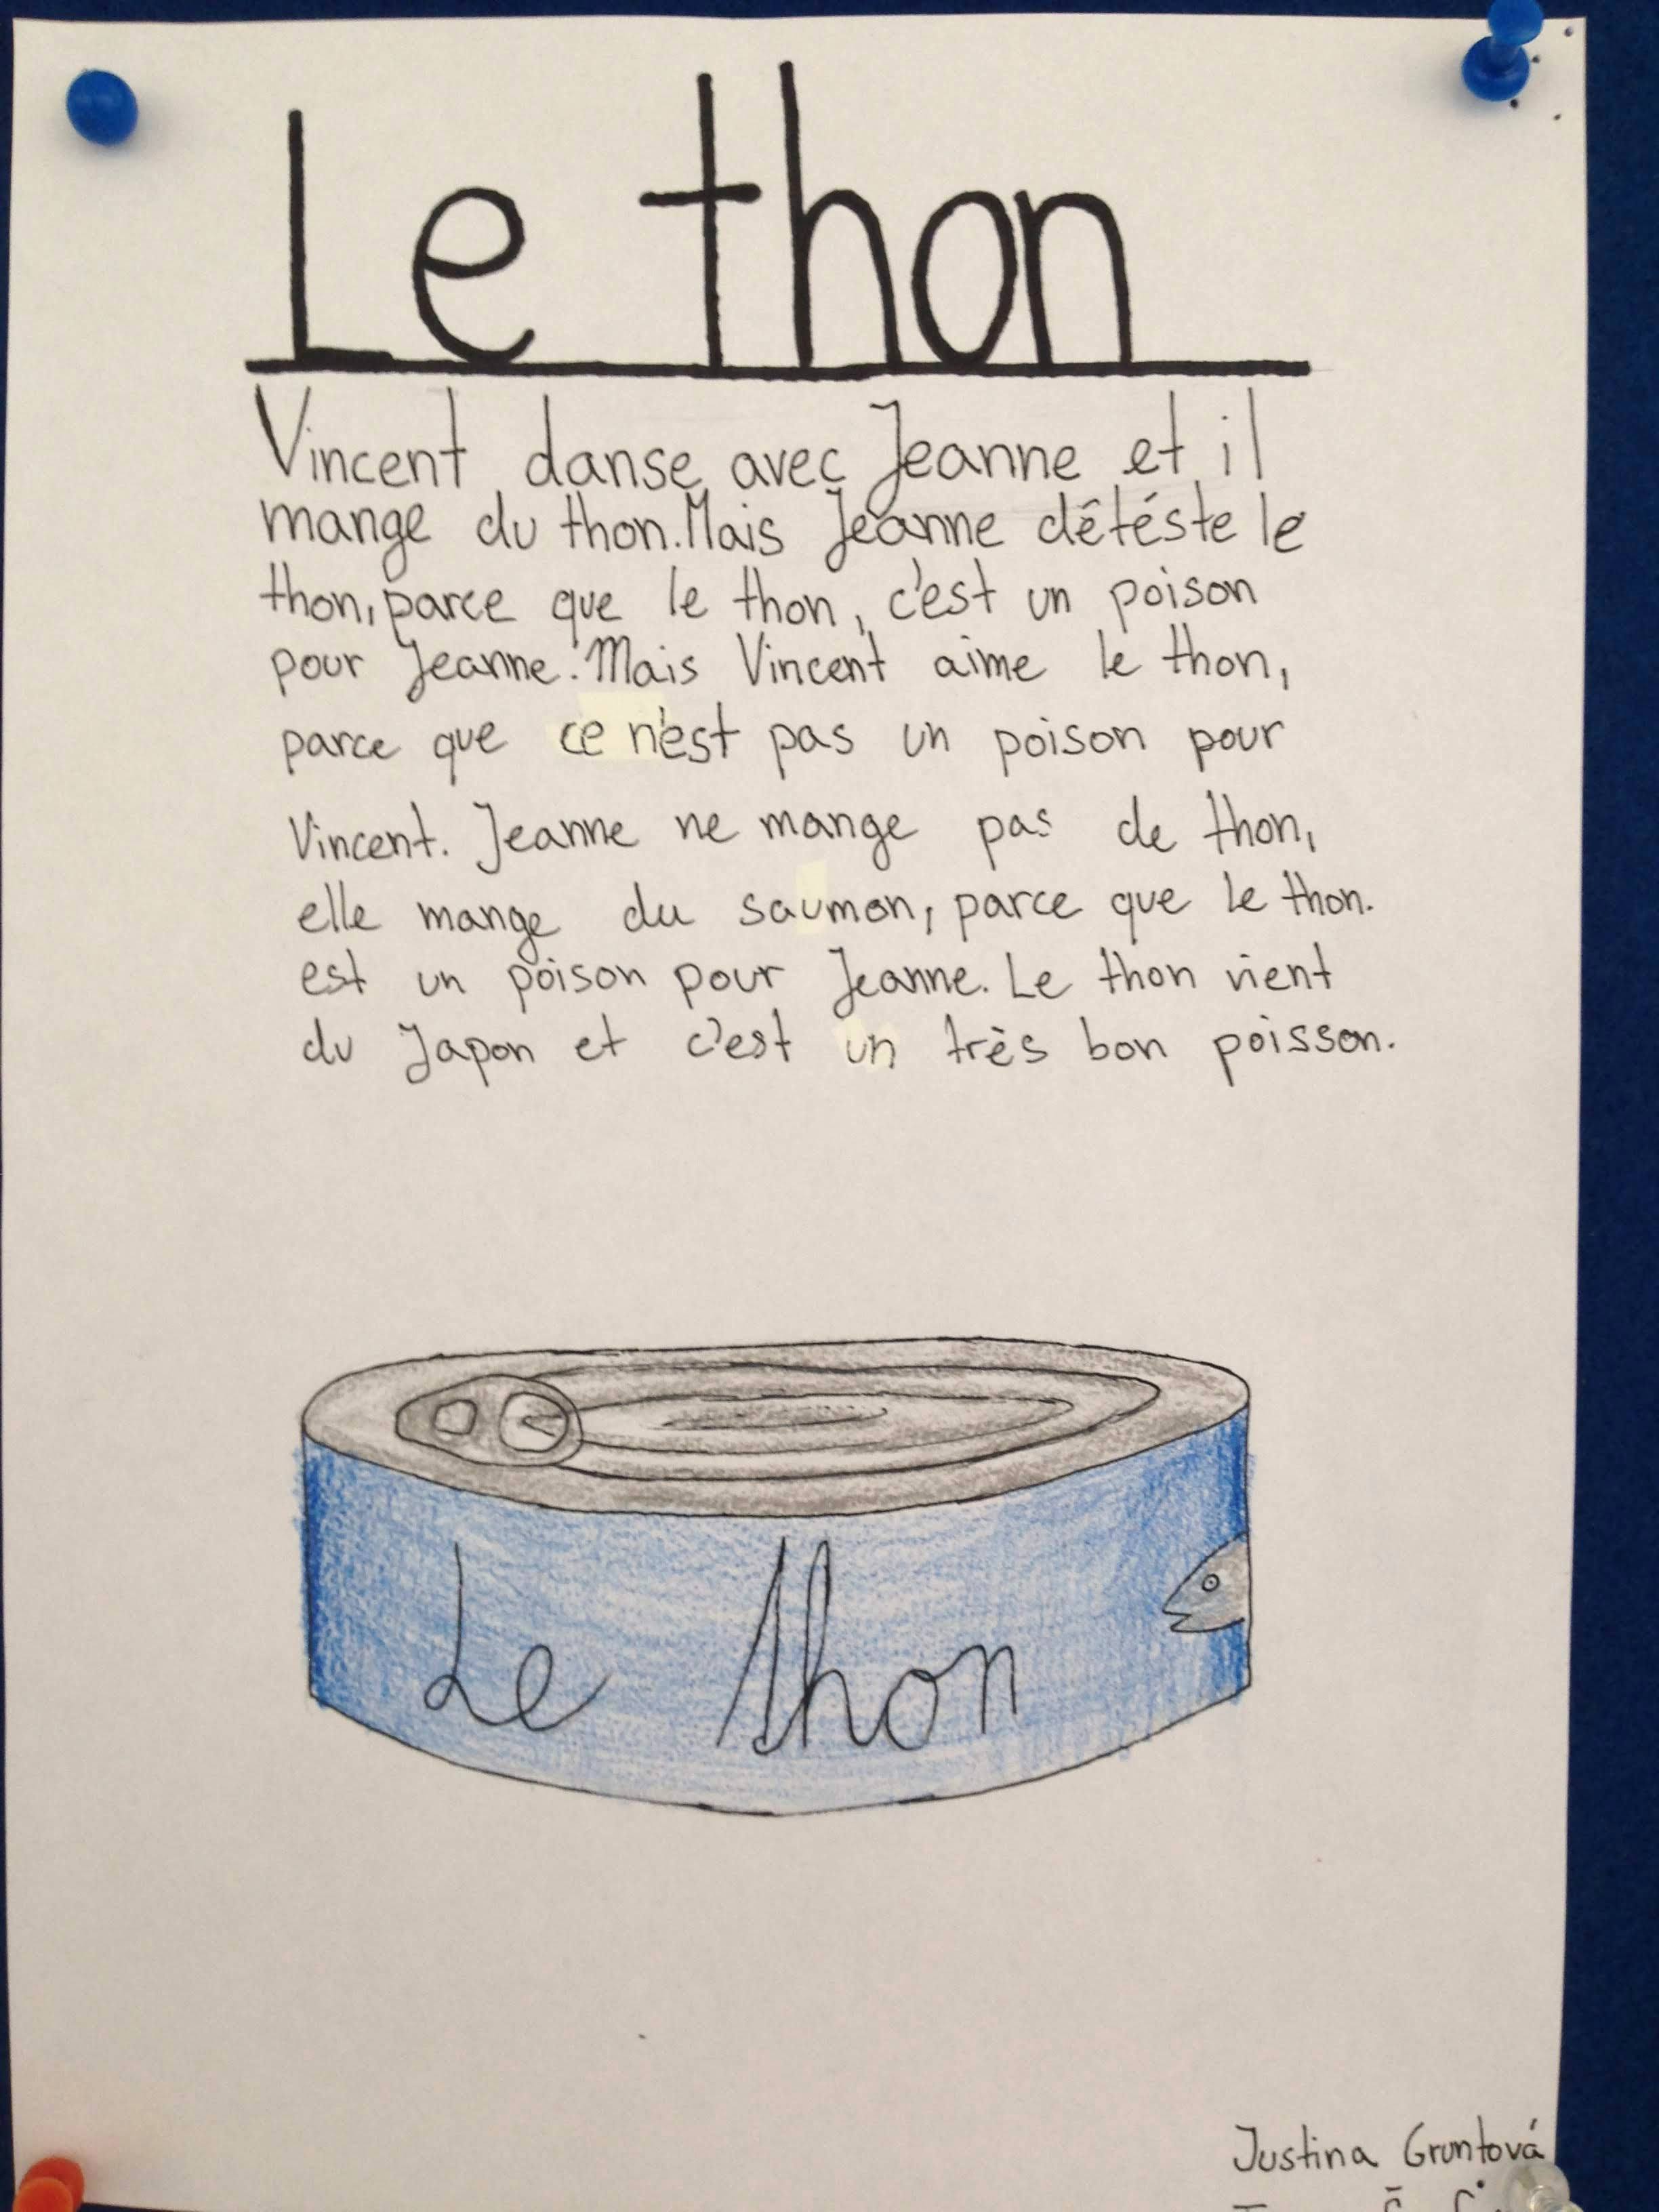 Le thon
Vincent danse avec Jeanne et il
mange du thon. Mais Jeanne détéste le
thon, parce que le thon, c'est un poison
pour Jeanne. Mais Vincent aime le thon,
parce que ce n'est pas un poison pour
Vincent. Jeanne ne mange pas de thon,
elle mange du saumon, parce que le thon.
est un poison pour Jeanne. Le thon vient
du Japon et c'est un très bon poisson.
Le thon
Justina Gruntová